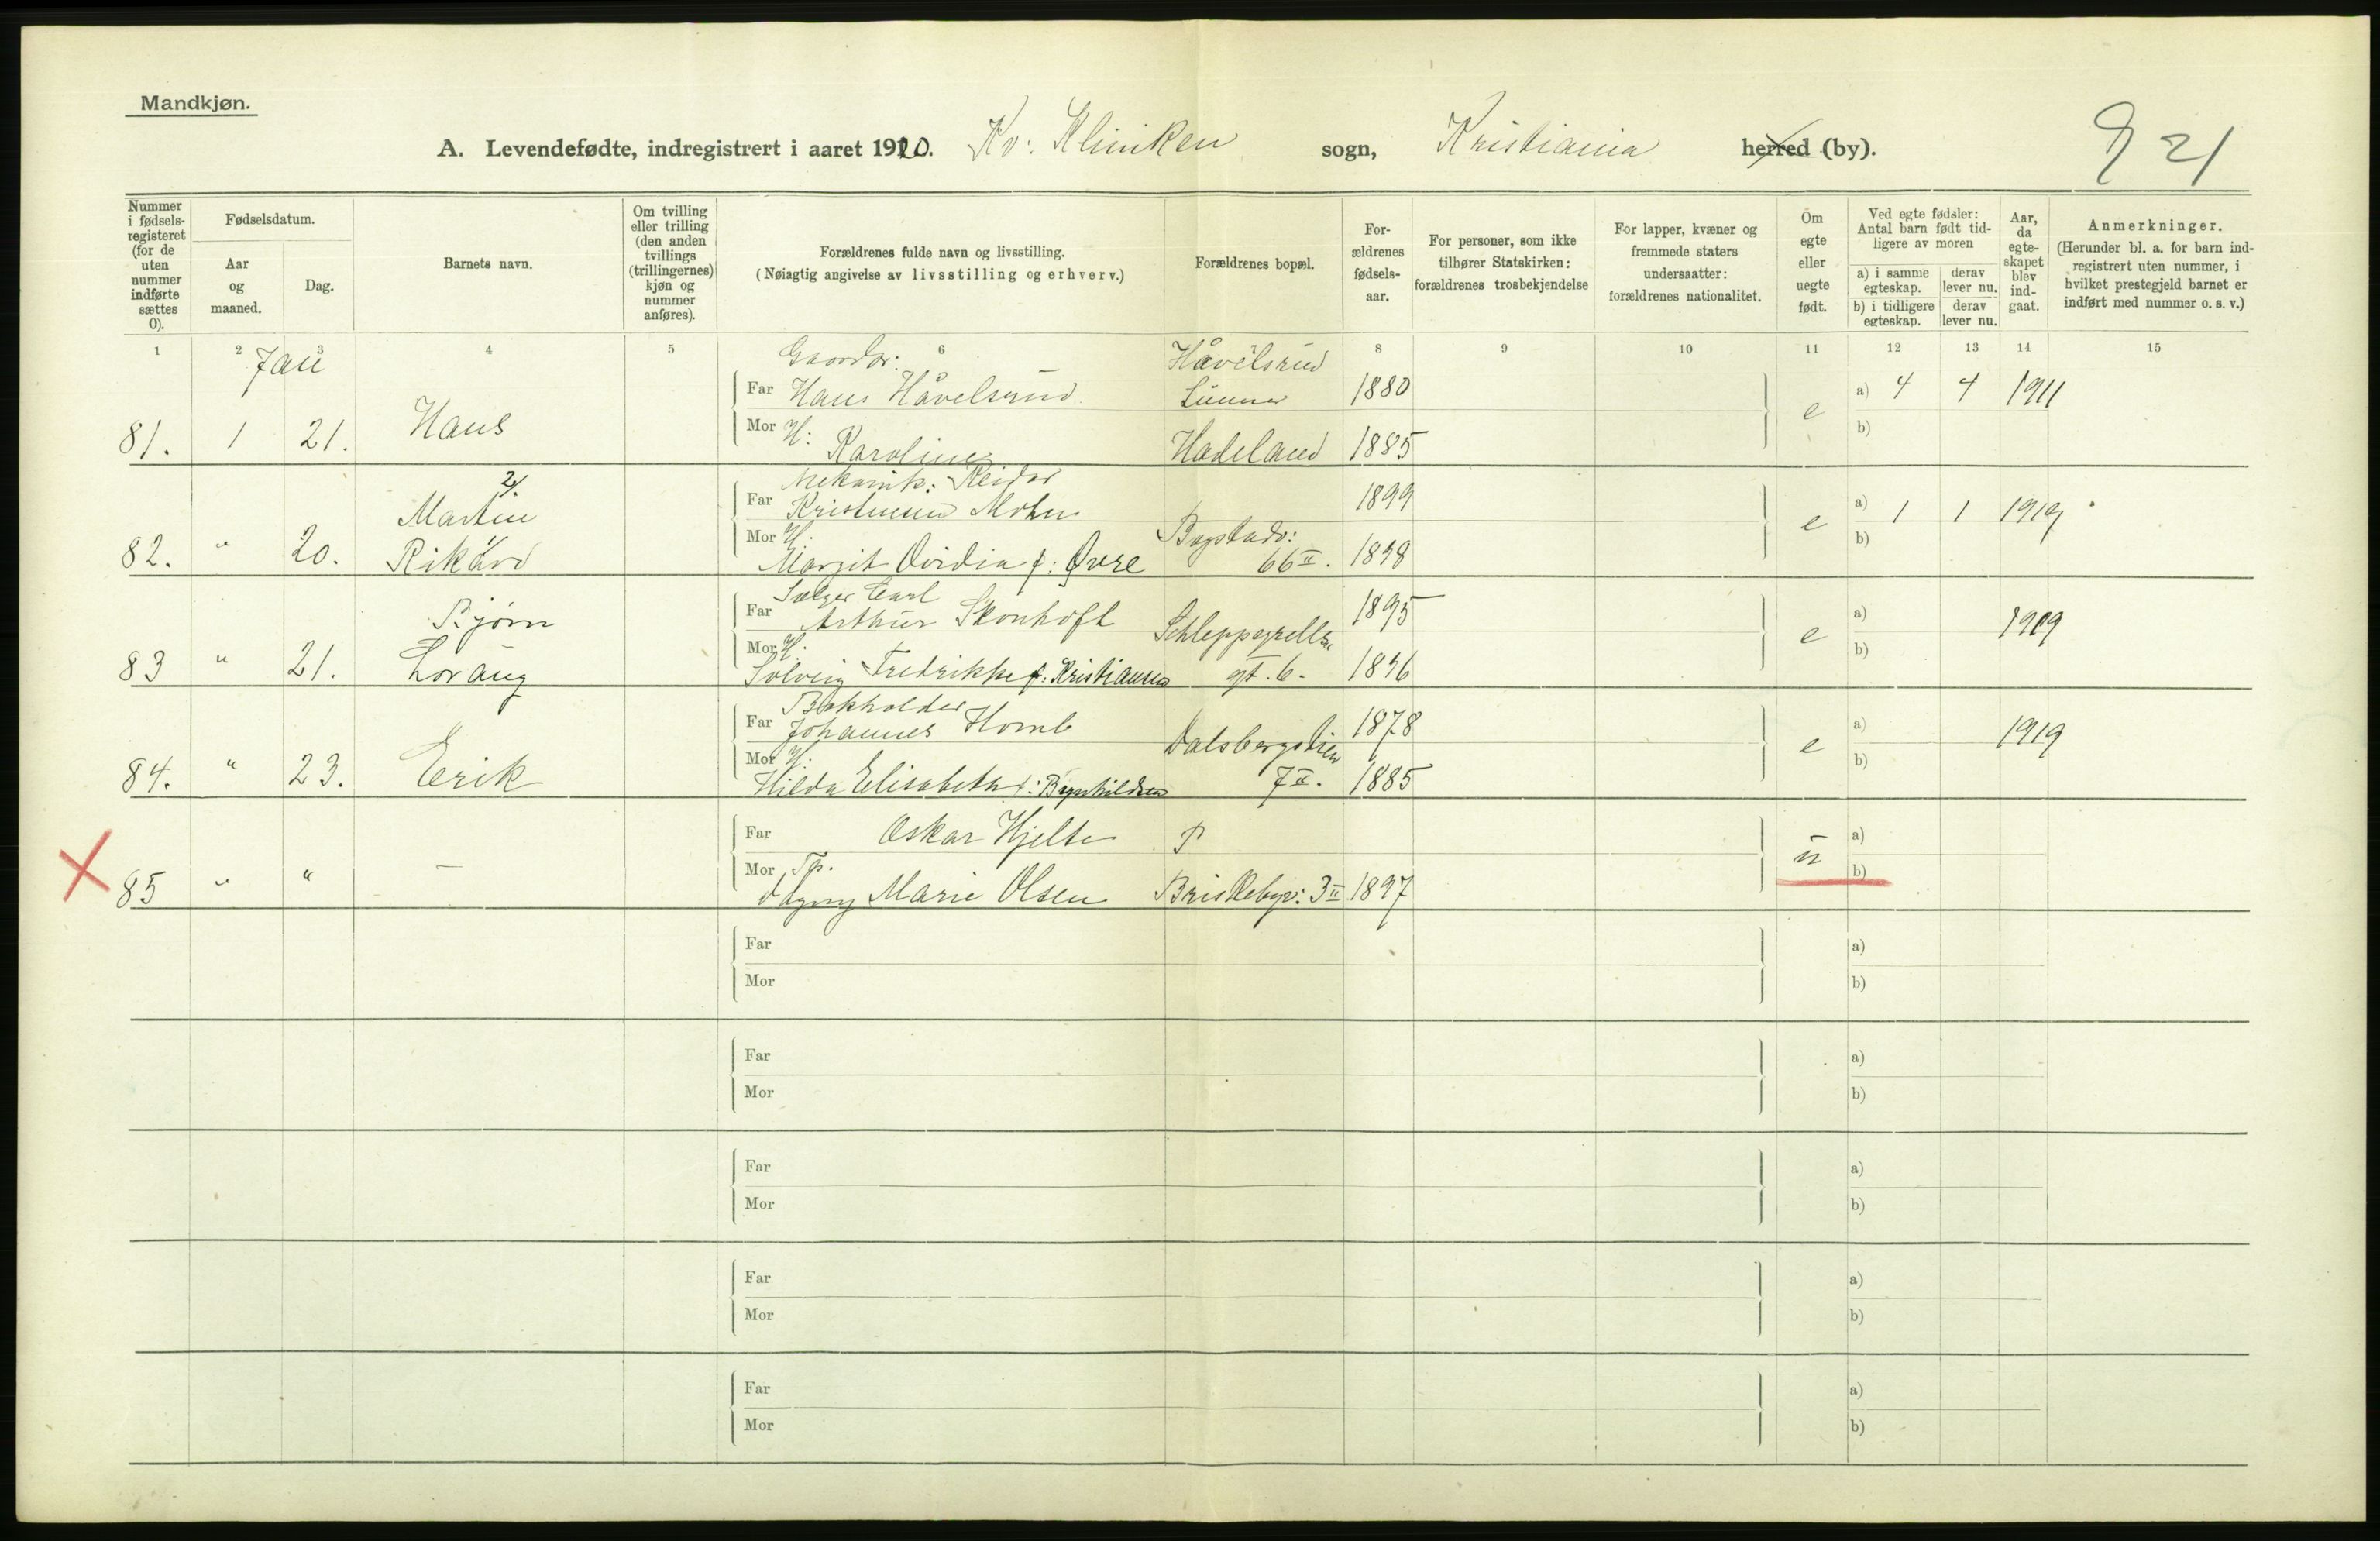 Mandkjøn.
A. Levendefødte, indregistrert i aaret 1920. Kv: Kliniken sogn, Kristiania herred (by). 21
Nummer i fødsels-registeret (for de uten nummer indførte sættes 0).
Fødselsdatum.
Aar og maaned.
Dag.
Barnets navn.
Om tvilling eller trilling (den anden tvillings (trillingernes) kjøn og nummer anføres).
Forældrenes fulde navn og livsstilling.
(Nøiagtig angivelse av livsstilling og erhverv.)
Forældrenes bopæl.
For-ældrenes fødsels-aar.
For personer, som ikke tilhører Statskirken: forældrenes trosbekjendelse
For lapper, kvæner og fremmede staters undersaatter: forældrenes nationalitet.
Om egte eller uegte født.
Ved egte fødsler: Antal barn født tid-ligere av moren
a) i samme egteskap.
derav lever nu.
b) i tidligere egteskap.
derav lever nu.
Aar, da egte-skapet blev ind-gaat.
Anmerkninger.
(Herunder bl. a. for barn ind-registrert uten nummer, i hvilket prestegjeld barnet er indført med nummer o. s. v.)
1 2 3 4 5 6 7 8 9 10 11 12 13 14 15
Jan
Gaardbr: Håvelsrud
Far Hans Håvelsrud Lunner 1880 a) 4 4 1911
81. 1 21. Hans Mor H: Karoline Hadeland 1885 e b)
2/ Mekanik: Reidar
Martin Far Kristensen Mohn 1899 a) 1 1 1919
82. " 20. Rikard 1/ Mor H: Margit Ovidia f: Øvre Bogstadv: 66 II. 1898 e b)
Sælger Carl
Bjørn Far Arthur Skonhoft Schleppegrells 1895 a) 1919
83 " 21. Lorang Mor H: Solveig Fredrikke f: Kristiansen gt. 6. 1896 e b)
Bokholder
Far Johannes Homb Dalsbergstien 1878 a) 1919
84. " 23. Erik Mor H: Hilda Elisabeth f: Brynhildsen 7 II. 1885 e b)
Far Oskar Hjelte P a)
85 " " — Mor Tp. Dagny Marie Olsen Briskebyv: 3 II 1897 u b)
Far a)
Mor b)
Far a)
Mor b)
Far a)
Mor b)
Far a)
Mor b)
Far a)
Mor b)